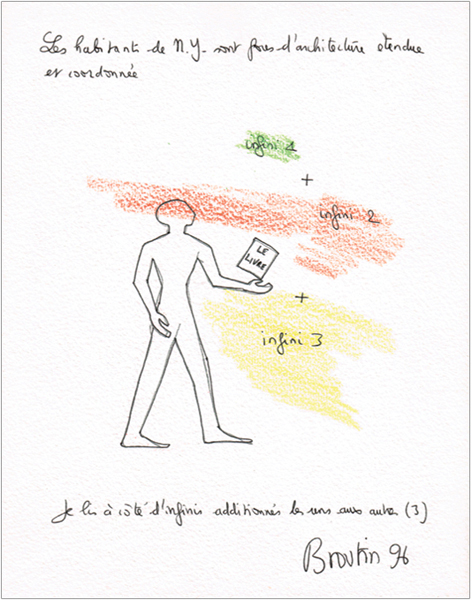 Les habitants de N.Y. sont fous d'architecture étendue
et coordonnée
infini 1
+
infini 2
LE
LIVRE
+
infini 3
Je lis à côté d'infinis additionnés les uns aux autres (3)
Broutin 96